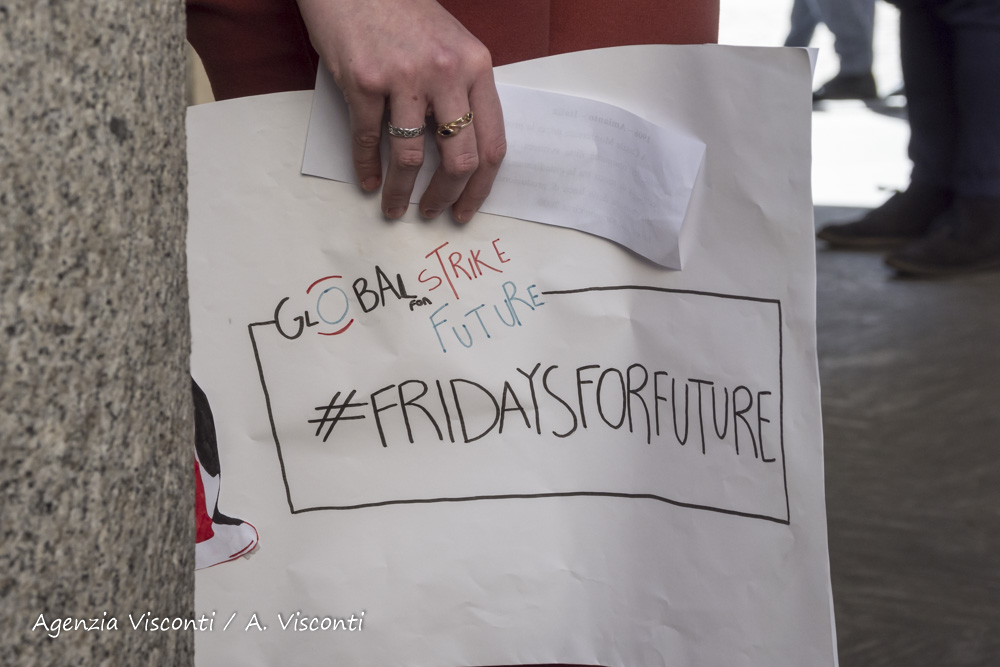 GLOBAL STRIKE
FOR FUTURE
#FRIDAYSFORFUTURE
Agenzia Visconti / A. Visconti